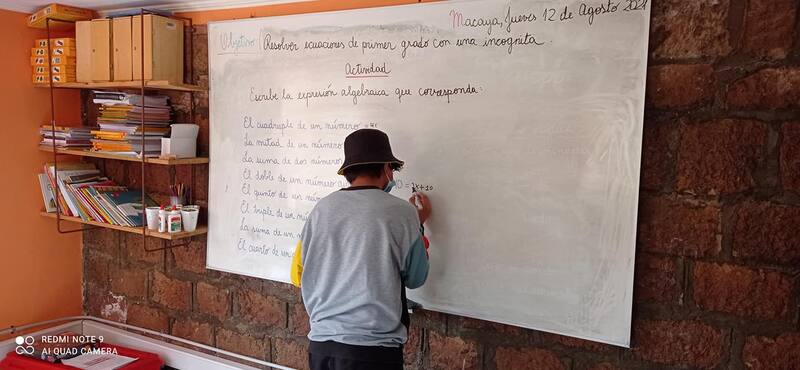 Macaya, Jueves 12 de Agosto 2021
Objetivo: Resolver ecuaciones de primer grado con una incognita.
Actividad
Escribe la expresión algebraica que corresponda:
El cuadruple de un número =
La mitad de un número
La suma de dos números
El doble de un número 10 = 2x+10
El quinto de un
El triple de un
La suma de un
El cuarto de un
REDMI NOTE 9
AI QUAD CAMERA